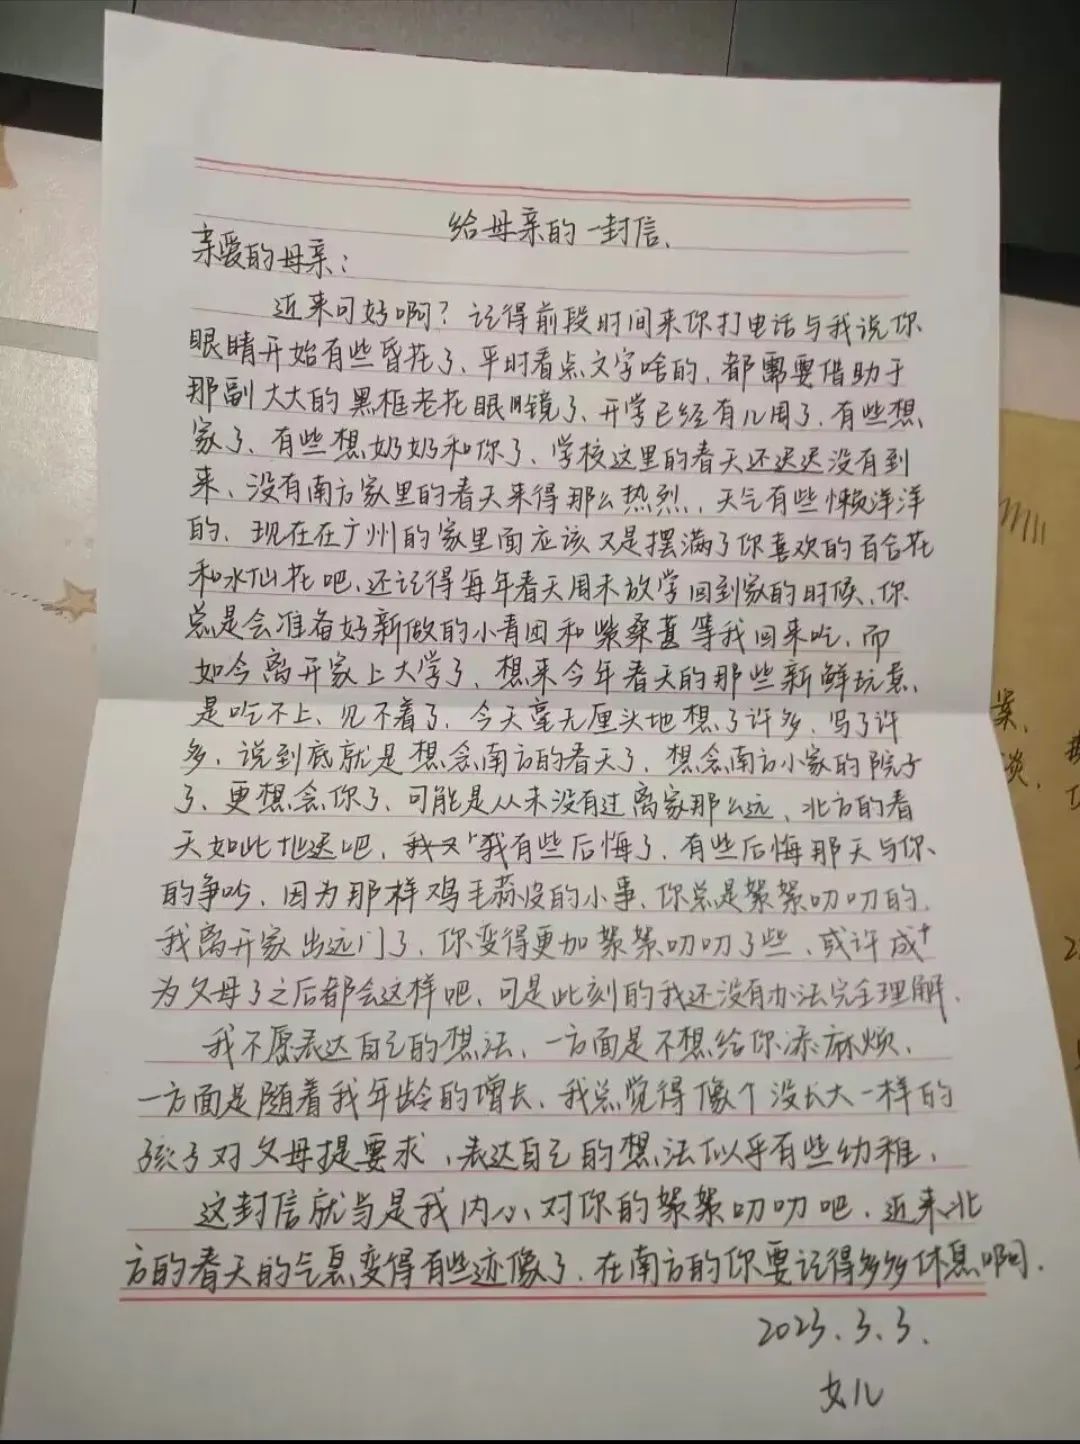 给母亲的一封信.
亲爱的母亲:
近来可好啊?记得前段时间来你打电话与我说你
眼睛开始有些昏花了、平时看点文字啥的、都需要借助于
那副大大的黑框老花眼镜了、开学已经有几周了、有些想
家了、有些想奶奶和你了、学校这里的春天还迟迟没有到
来、没有南方家里的春天来得那么热烈、天气有些懒洋洋
的、现在在广州的家里面应该又是摆满了你喜欢的百合花
和水仙花吧、还记得每年春天周末放学回到家的时候、你
总是会准备好新做的小青团和紫桑葚等我回来吃、而
如今离开家上大学了、想来今年春天的那些新鲜玩意、
是吃不上、见不着了、今天毫无厘头地想了许多、写了许
多、说到底就是想念南方的春天了、想念南方小家的院子
了、更想念你了、可能是从未没有过离家那么远、北方的春
天如此地迟吧、我又我有些后悔了、有些后悔那天与你
的争吵、因为那样鸡毛蒜皮的小事、你总是絮絮叨叨的、
我离开家出远门了、你变得更加絮絮叨叨了些、或许成
为父母了之后都会这样吧、可是此刻的我还没有办法完全理解、
我不愿表达自己的想法、一方面是不想给你添麻烦、
一方面是随着我年龄的增长、我总觉得像个没长大一样的
孩子对父母提要求、表达自己的想法似乎有些幼稚、
这封信就当是我内心对你的絮絮叨叨吧、近来北
方的春天的气息变得有些迹像了、在南方的你要记得多多休息啊.
2023.3.3.
女儿
案、
谈、